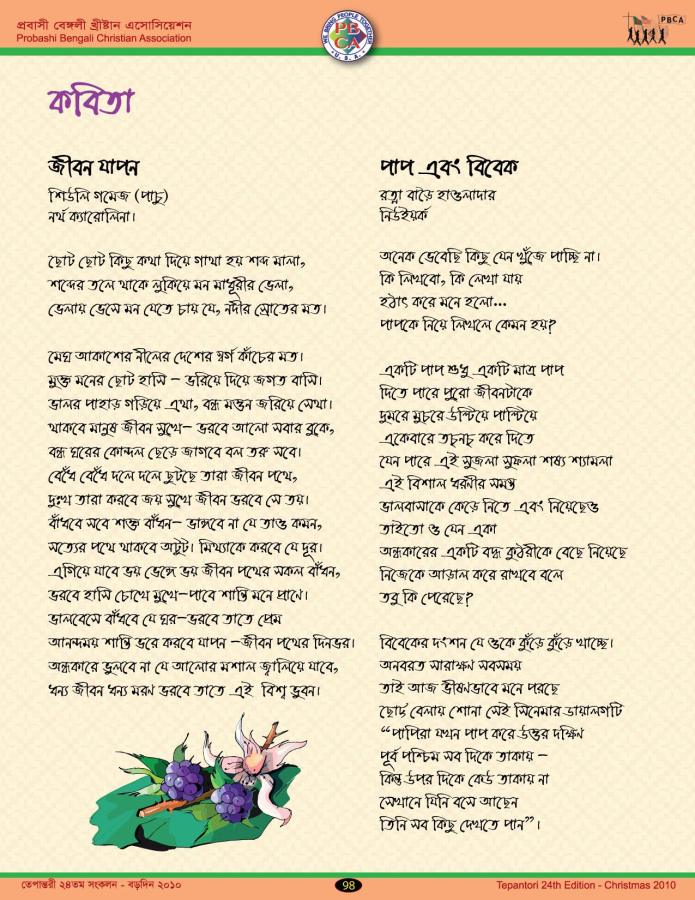 প্রবাসী বেঙ্গলী খ্রীষ্টান এসোসিয়েশন
Probashi Bengali Christian Association
WE BRING PEOPLE TOGETHER
PB
CA
U.S.A.
PBCA
কবিতা
জীবন যাপন
শিউলি গমেজ (পাচু)
নর্থ ক্যারোলিনা।
ছোট ছোট কিছু কথা দিয়ে গাথা হয় শব্দ মালা,
শব্দের তলে থাকে লুকিয়ে মন মাধুরীর ভেলা,
ভেলায় ভেসে মন যেতে চায় যে, নদীর স্রোতের মত।
মেঘ আকাশের নীলের দেশের স্বর্গ কাঁচের মত।
মুক্ত মনের ছোট হাসি – ভরিয়ে দিয়ে জগত বাসি।
ভালর পাহাড় গড়িয়ে এথা, বন্ধ মন্তন জরিয়ে সেথা।
থাকবে মানুষ জীবন সুখে– ভরবে আলো সবার বুকে,
বন্ধ ঘরের কোন্দল ছেড়ে জাগবে বল তরু সবে।
বেঁধে বেঁধে দলে দলে ছুটছে তারা জীবন পথে,
দুঃখ তারা করবে জয় সুখে জীবন ভরবে সে তয়।
বাঁধবে সবে শক্ত বাঁধন– ভাঙ্গবে না যে তাও কমন,
সত্যের পথে থাকবে অটুট। মিথ্যাকে করবে যে দূর।
এগিয়ে যাবে ভয় ভেঙ্গে ভয় জীবন পথের সকল বাঁধন,
ভরবে হাসি চোখে মুখে–পাবে শান্তি মনে প্রাণে।
ভালবেসে বাঁধবে যে ঘর–ভরবে তাতে প্রেম
আনন্দময় শান্তি ভরে করবে যাপন –জীবন পথের দিনভর।
অন্ধকারে ভুলবে না যে আলোর মশাল জ্বালিয়ে যাবে,
ধন্য জীবন ধন্য মরণ ভরবে তাতে এই বিশ্ব ভুবন।
পাপ এবং বিবেক
রত্না বাড়ৈ হাওলাদার
নিউইয়র্ক
অনেক ভেবেছি কিছু যেন খুঁজে পাচ্ছি না।
কি লিখবো, কি লেখা যায়
হঠাৎ করে মনে হলো...
পাপকে নিয়ে লিখলে কেমন হয়?
একটি পাপ শুধু একটি মাত্র পাপ
দিতে পারে পুরো জীবনটাকে
দুমরে মুচরে উল্টিয়ে পাল্টিয়ে
একেবারে তচনচ করে দিতে
যেন পারে এই সুজলা সুফলা শষ্য শ্যামলা
এই বিশাল ধরণীর সমস্ত
ভালবাসাকে কেড়ে নিতে এবং নিয়েছেও
তাইতো ও যেন একা
অন্ধকারের একটি বদ্ধ কুঠরীকে বেছে নিয়েছে
নিজেকে আড়াল করে রাখবে বলে
তবু কি পেরেছে?
বিবেকের দংশন যে ওকে কুঁড়ে কুঁড়ে খাচ্ছে।
অনবরত সারাক্ষণ সবসময়
তাই আজ ভীষণভাবে মনে পরছে
ছোট্ বেলায় শোনা সেই সিনেমার ডায়ালগটি
“পাপিরা যখন পাপ করে উত্তর দক্ষিণ
পূর্ব পশ্চিম সব দিকে তাকায় –
কিন্তু উপর দিকে কেউ তাকায় না
সেখানে যিনি বসে আছেন
তিনি সব কিছু দেখতে পান”।
তেপান্তরী ২৪তম সংকলন - বড়দিন ২০১০
98
Tepantori 24th Edition - Christmas 2010